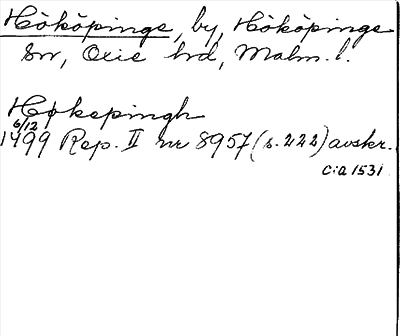 Hököpinge, by, Hököpinge
sn, Oxie hd, Malm. l.
Høkepingh
6/12
1499 Rep. II nr 8957 (s. 222) avskr.
c:a 1531